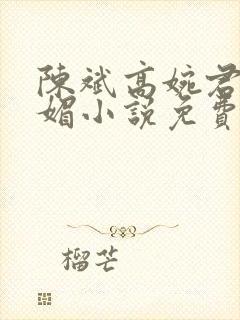 陳斌高婉君
媚小說免費
榴芒